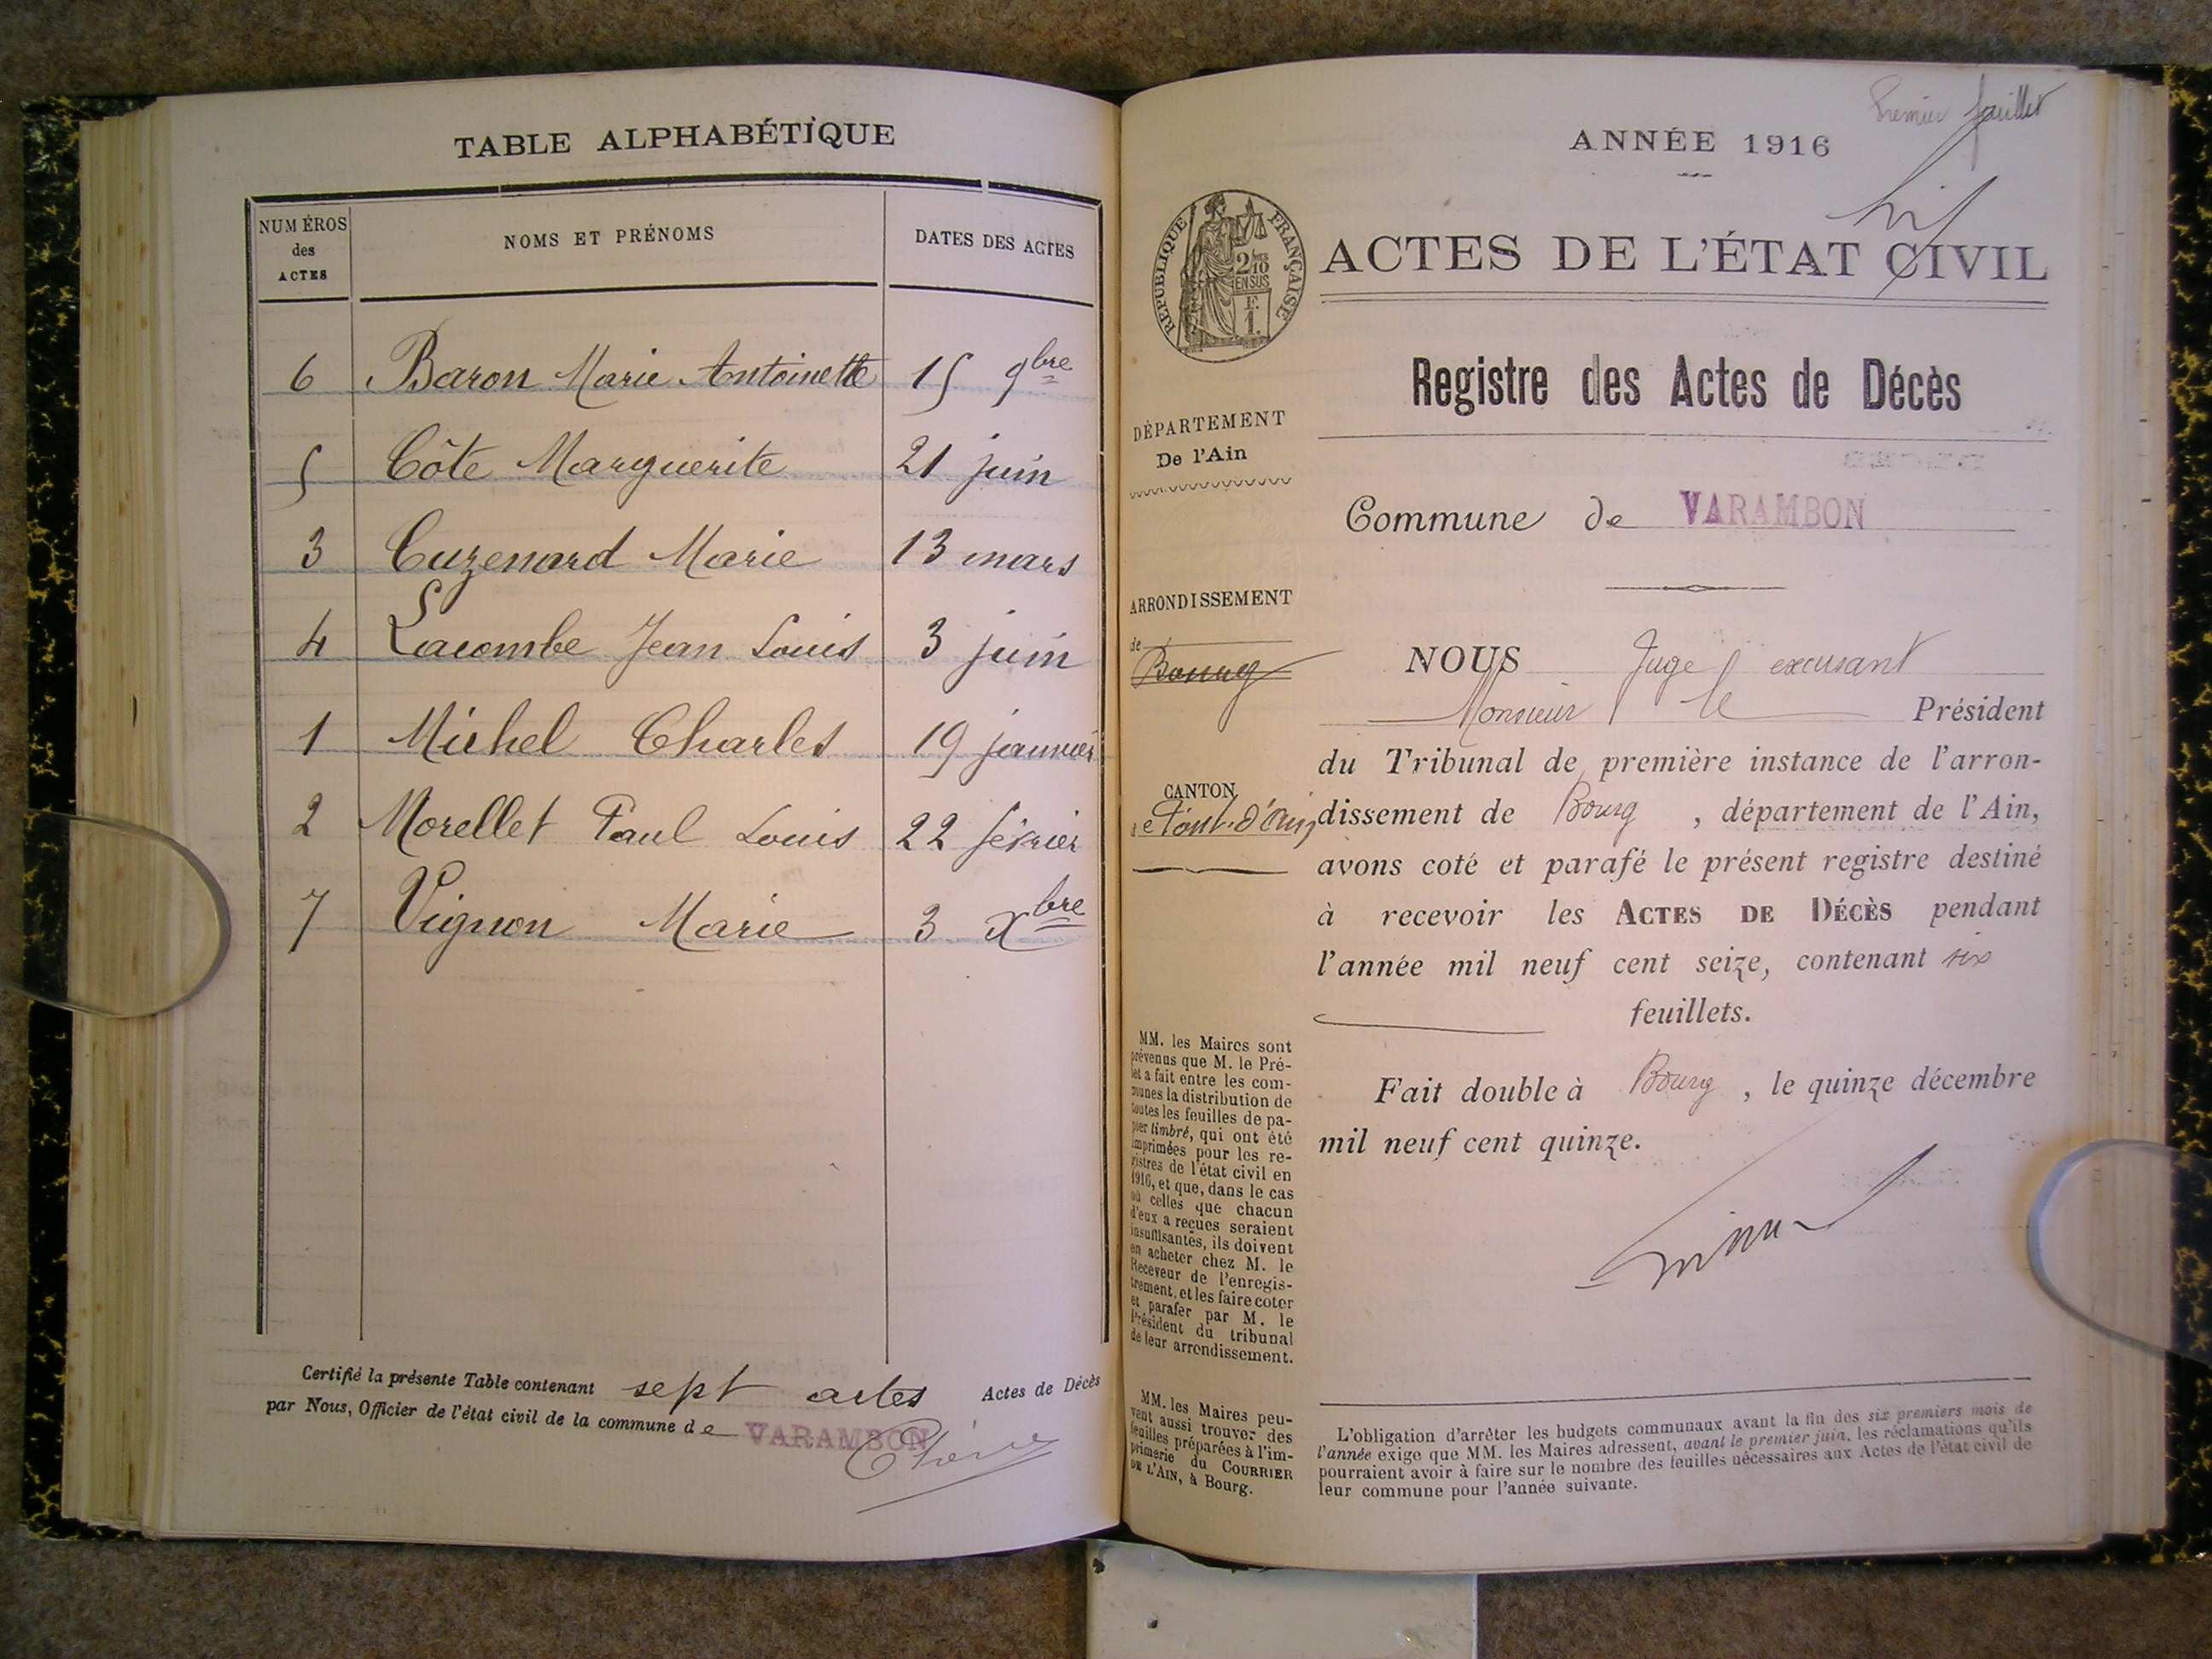 TABLE ALPHABÉTIQUE
NUMÉROS des ACTES
NOMS ET PRÉNOMS
DATES DES ACTES
6 Baron Marie Antoinette 15 9bre
5 Côte Marguerite 21 juin
3 Cuzenard Marie 13 mars
4 Lacombe Jean Louis 3 juin
1 Michel Charles 19 janvier
2 Morellet Paul Louis 22 février
7 Vignon Marie 3 Xbre
Certifié la présente Table contenant sept actes Actes de Décès
par Nous, Officier de l'état civil de la commune de VARAMBON
Premier feuillet
ANNÉE 1916
RÉPUBLIQUE FRANÇAISE
2/10
EN SUS
F.
1.
ACTES DE L'ÉTAT CIVIL
Registre des Actes de Décès
DÉPARTEMENT
De l'Ain
Commune de VARAMBON
ARRONDISSEMENT
de
Bourg
CANTON
de Pont-d'Ain
NOUS Juge excusant
Monsieur le Président
du Tribunal de première instance de l'arron-
dissement de Bourg, département de l'Ain,
avons coté et parafé le présent registre destiné
à recevoir les ACTES DE DÉCÈS pendant
l'année mil neuf cent seize, contenant six
feuillets.
Fait double à Bourg, le quinze décembre
mil neuf cent quinze.
MM. les Maires sont
prévenus que M. le Pré-
fet a fait entre les com-
munes la distribution de
toutes les feuilles de pa-
pier timbré, qui ont été
imprimées pour les re-
gistres de l'état civil en
1916, et que, dans le cas
où celles que chacun
d'eux a reçues seraient
insuffisantes, ils doivent
en acheter chez M. le
Receveur de l'enregis-
trement, et les faire coter
et parafer par M. le
Président du tribunal
de leur arrondissement.
MM. les Maires peu-
vent aussi trouver des
feuilles préparées à l'im-
primerie du COURRIER
DE L'AIN, à Bourg.
L'obligation d'arrêter les budgets communaux avant la fin des six premiers mois de
l'année exige que MM. les Maires adressent, avant le premier juin, les réclamations qu'ils
pourraient avoir à faire sur le nombre des feuilles nécessaires aux Actes de l'état civil de
leur commune pour l'année suivante.